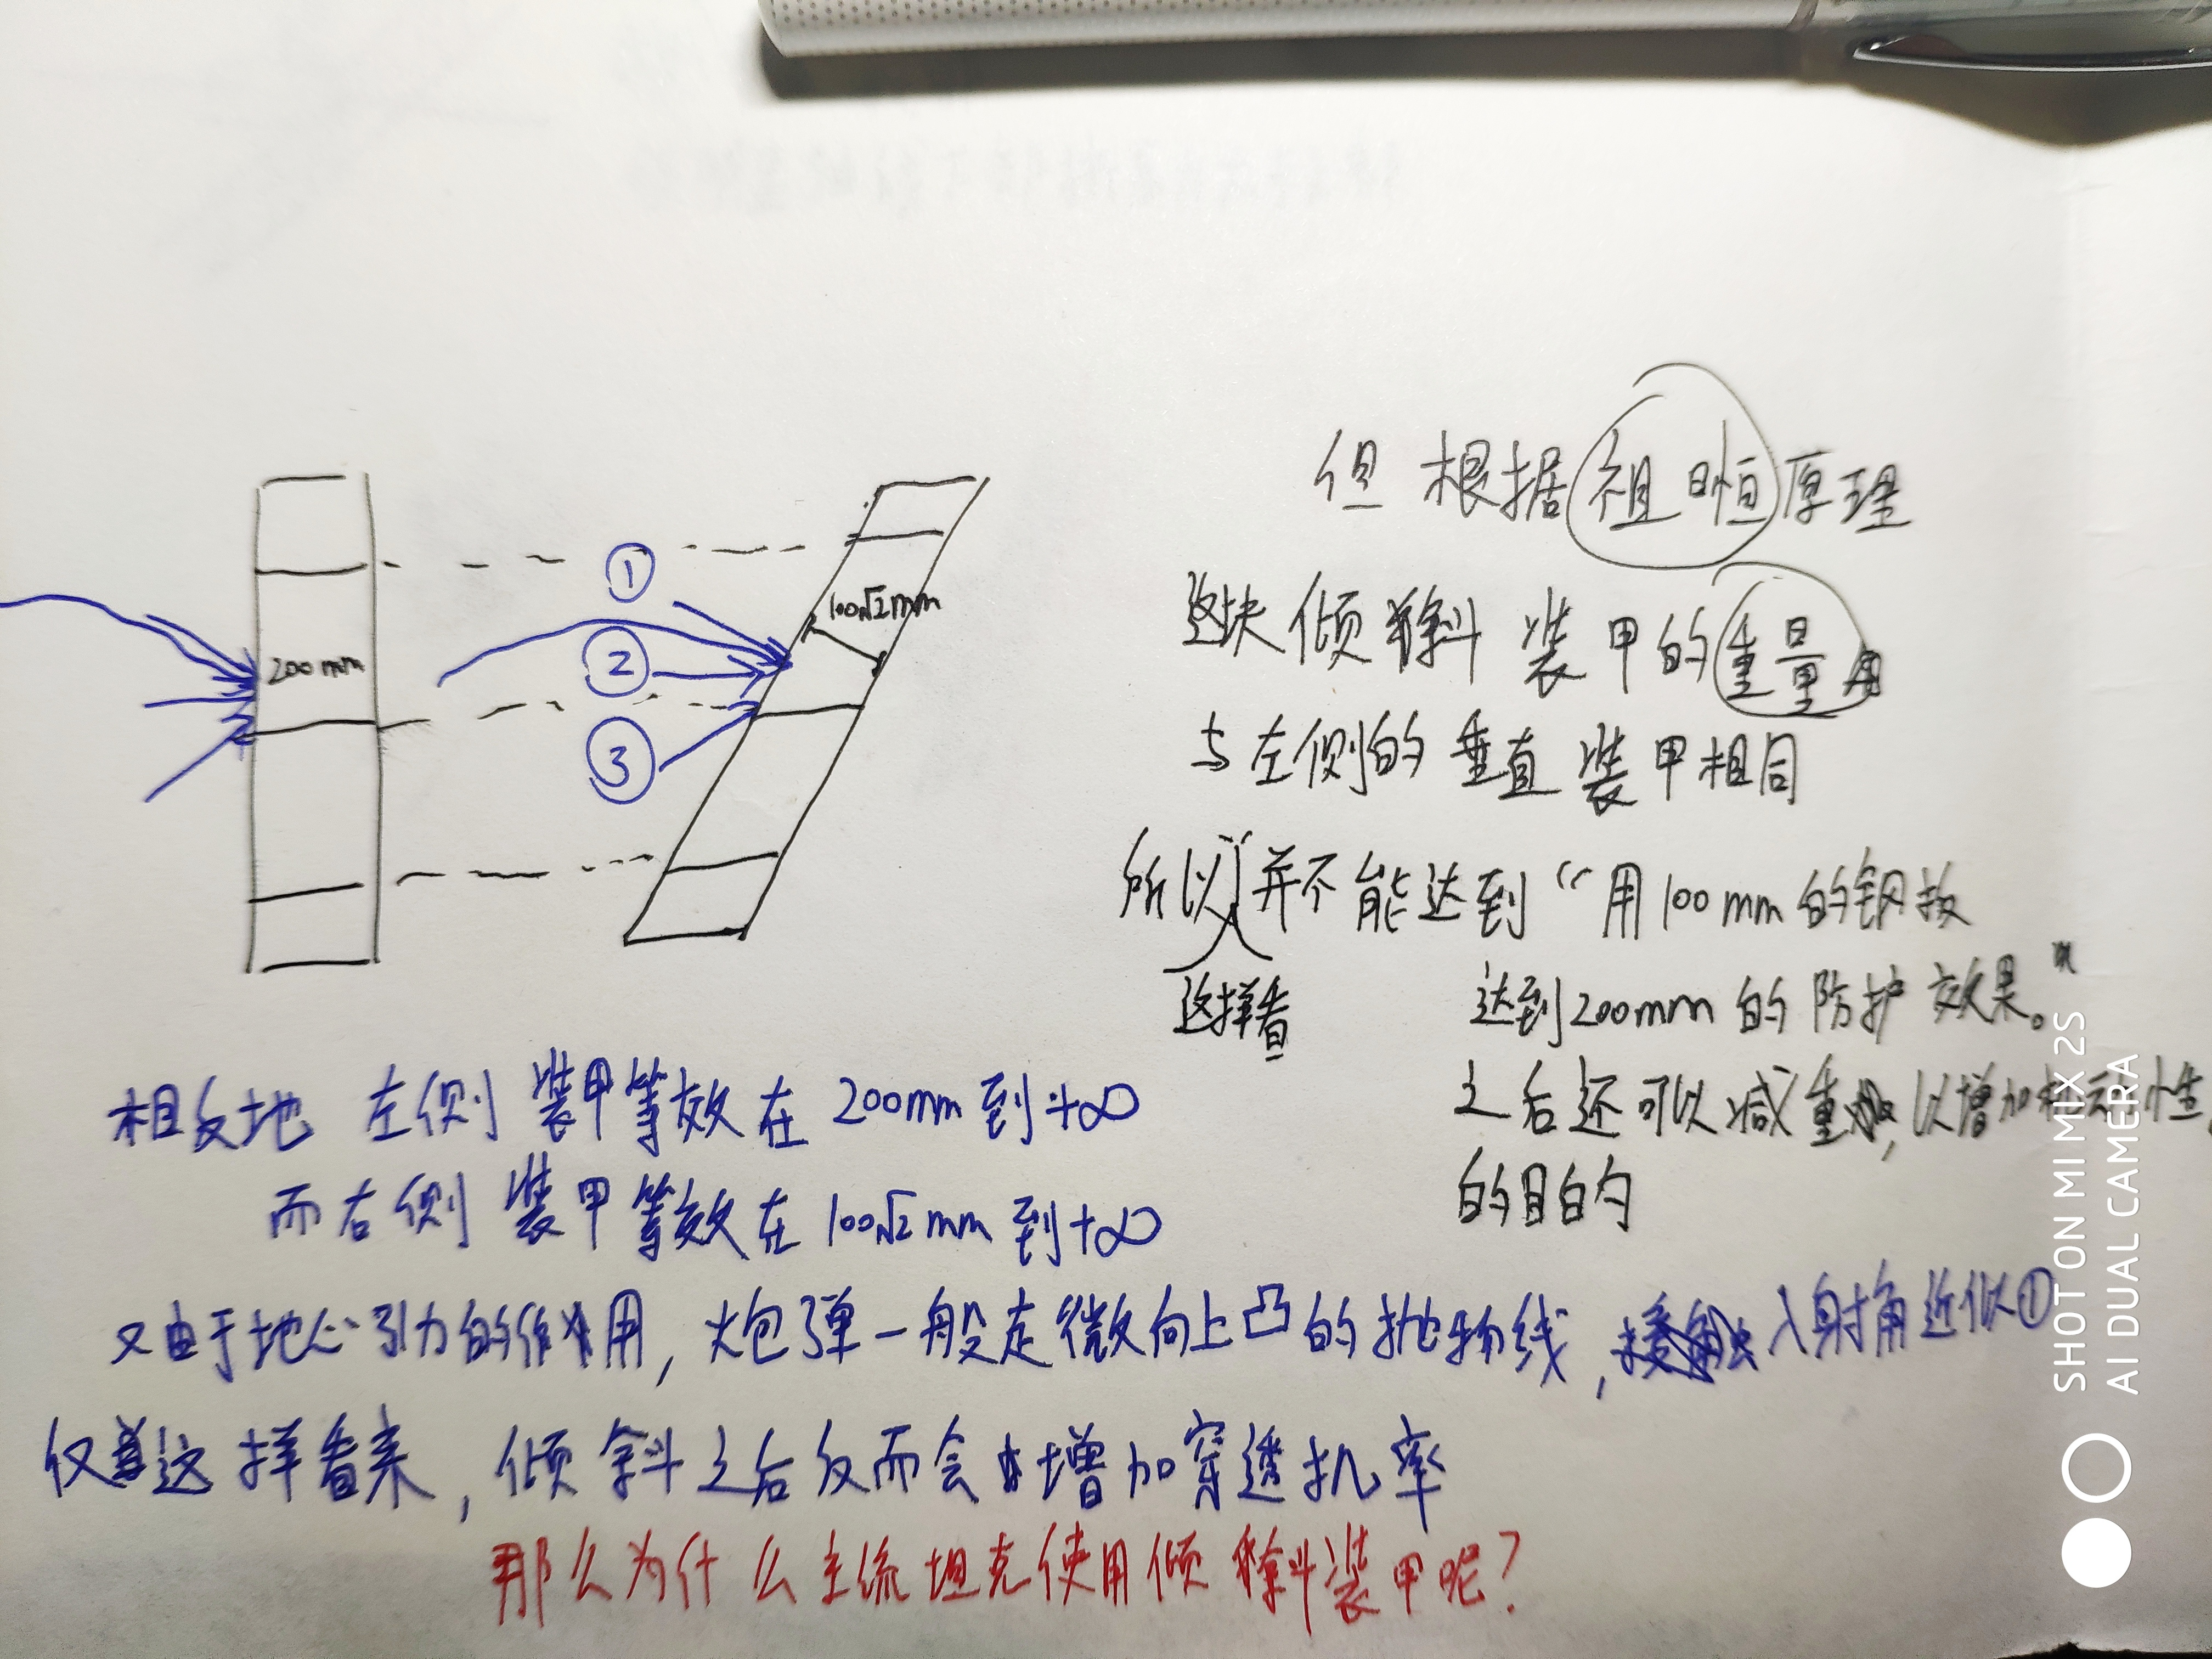 但根据祖暅原理
这块倾斜装甲的重量
与左侧的垂直装甲相同
所以这样看并不能达到“用100mm的钢板
达到200mm的防护效果。”
之后还可以减重,以增加机动性
的目的
①
②
③
200mm
100√2mm
相反地 左侧装甲等效在200mm到+∞
而右侧装甲等效在100√2mm到+∞
又由于地心引力的作用,炮弹一般走微向上凸的抛物线,入射角近似①
仅这样看来,倾斜之后反而会增加穿透机率
那么为什么主流坦克使用倾斜装甲呢?
SHOT ON MI MIX 2S
AI DUAL CAMERA